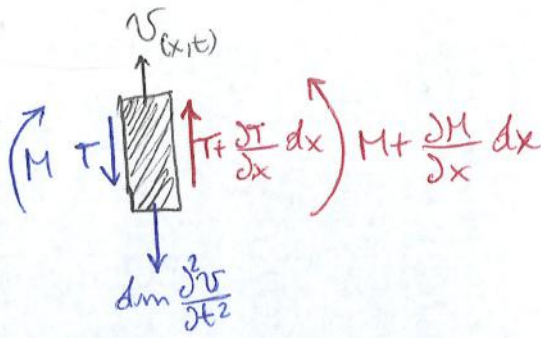 v(x,t)
M T T + ∂T/∂x dx M + ∂M/∂x dx
dm ∂²v/∂t²